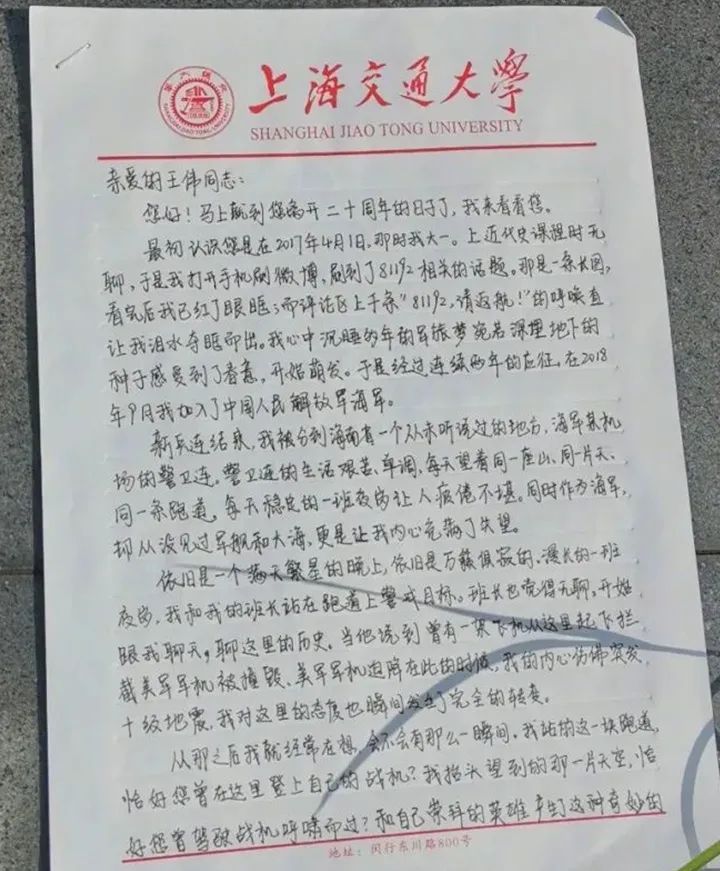 上海交通大学
SHANGHAI JIAO TONG UNIVERSITY
SHANGHAI JIAO TONG UNIVERSITY
亲爱的王伟同志：
您好！马上就到您离开二十周年的日子了，我来看看您。
最初认识您是在2017年4月1日，那时我大一。上近代史课程时无
聊，于是我打开手机刷微博，刷到了81192相关的话题。那是一条长图，
看完后我已红了眼眶；而评论区上千条“81192，请返航！”的呼唤直
让我泪水夺眶而出。我心中沉睡多年的军旅梦宛若深埋地下的
种子感受到了春意，开始萌发。于是经过连续两年的应征，在2018
年9月我加入了中国人民解放军海军。
新兵连结束，我被分到海南省一个从未听说过的地方，海军某机
场的警卫连。警卫连的生活艰苦、单调，每天望着同一座山、同一片天、
同一条跑道，每天稳定的一班夜岗让人疲倦不堪。同时作为海军，
却从没见过军舰和大海，更是让我内心充满了失望。
依旧是一个满天繁星的晚上，依旧是万籁俱寂的、漫长的一班
夜岗，我和我的班长站在跑道上警戒目标。班长也觉得无聊，开始
跟我聊天，聊这里的历史。当他说到曾有一架飞机从这里起飞拦
截美军军机被撞毁、美军军机迫降在此的时候，我的内心仿佛突发
十级地震，我对这里的态度也瞬间发生了完全的转变。
从那之后我就经常在想，会不会有那么一瞬间，我站的这一块跑道，
恰好您曾在这里登上自己的战机？我抬头望到的那一片天空，恰
好您曾驾驶战机呼啸而过？和自己崇拜的英雄产生这种奇妙的
地址：闵行东川路800号